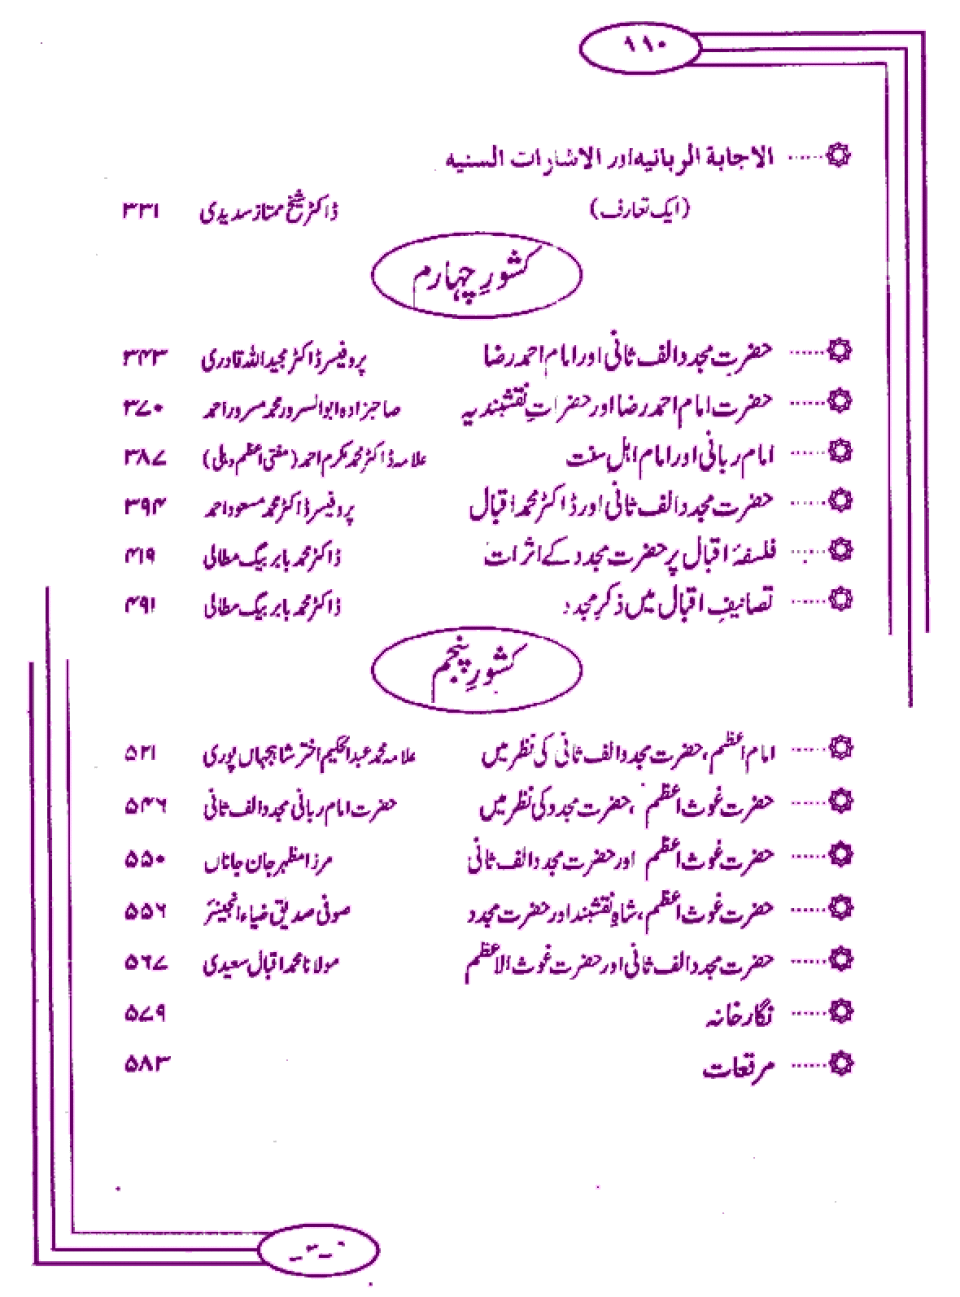 ۱۱۰
الاجابة الربانیه اور الاشارات السنیه
(ایک تعارف) ڈاکٹر شیخ ممتاز سدیدی ۳۳۱
کشورِ چہارم
حضرت مجدد الف ثانی اور امام احمد رضا پروفیسر ڈاکٹر مجید اللہ قادری ۳۴۳
حضرت امام احمد رضا اور حضراتِ نقشبندیہ صاحبزادہ ابوالسرور محمد مسرور احمد ۳۷۰
امام ربانی اور امام اہلِ سنت علامہ ڈاکٹر محمد مکرم احمد (مفتی اعظم دہلی) ۳۸۷
حضرت مجدد الف ثانی اور ڈاکٹر محمد اقبال پروفیسر ڈاکٹر محمد مسعود احمد ۳۹۴
فلسفۂ اقبال پر حضرت مجدد کے اثرات ڈاکٹر محمد بابر بیگ مطالی ۴۱۹
تصانیفِ اقبال میں ذکرِ مجدد ڈاکٹر محمد بابر بیگ مطالی ۴۹۱
کشورِ پنجم
امام اعظم، حضرت مجدد الف ثانی کی نظر میں علامہ محمد عبدالحکیم اختر شاہجہاں پوری ۵۲۱
حضرت غوث اعظم، حضرت مجدد کی نظر میں حضرت امام ربانی مجدد الف ثانی ۵۴۶
حضرت غوث اعظم اور حضرت مجدد الف ثانی مرزا مظہر جان جاناں ۵۵۰
حضرت غوث اعظم، شاہِ نقشبند اور حضرت مجدد صوفی صدیق ضیاء انجینئر ۵۵۶
حضرت مجدد الف ثانی اور حضرت غوث الاعظم مولانا محمد اقبال سعیدی ۵۶۷
نگار خانہ ۵۷۹
مرقعات ۵۸۳